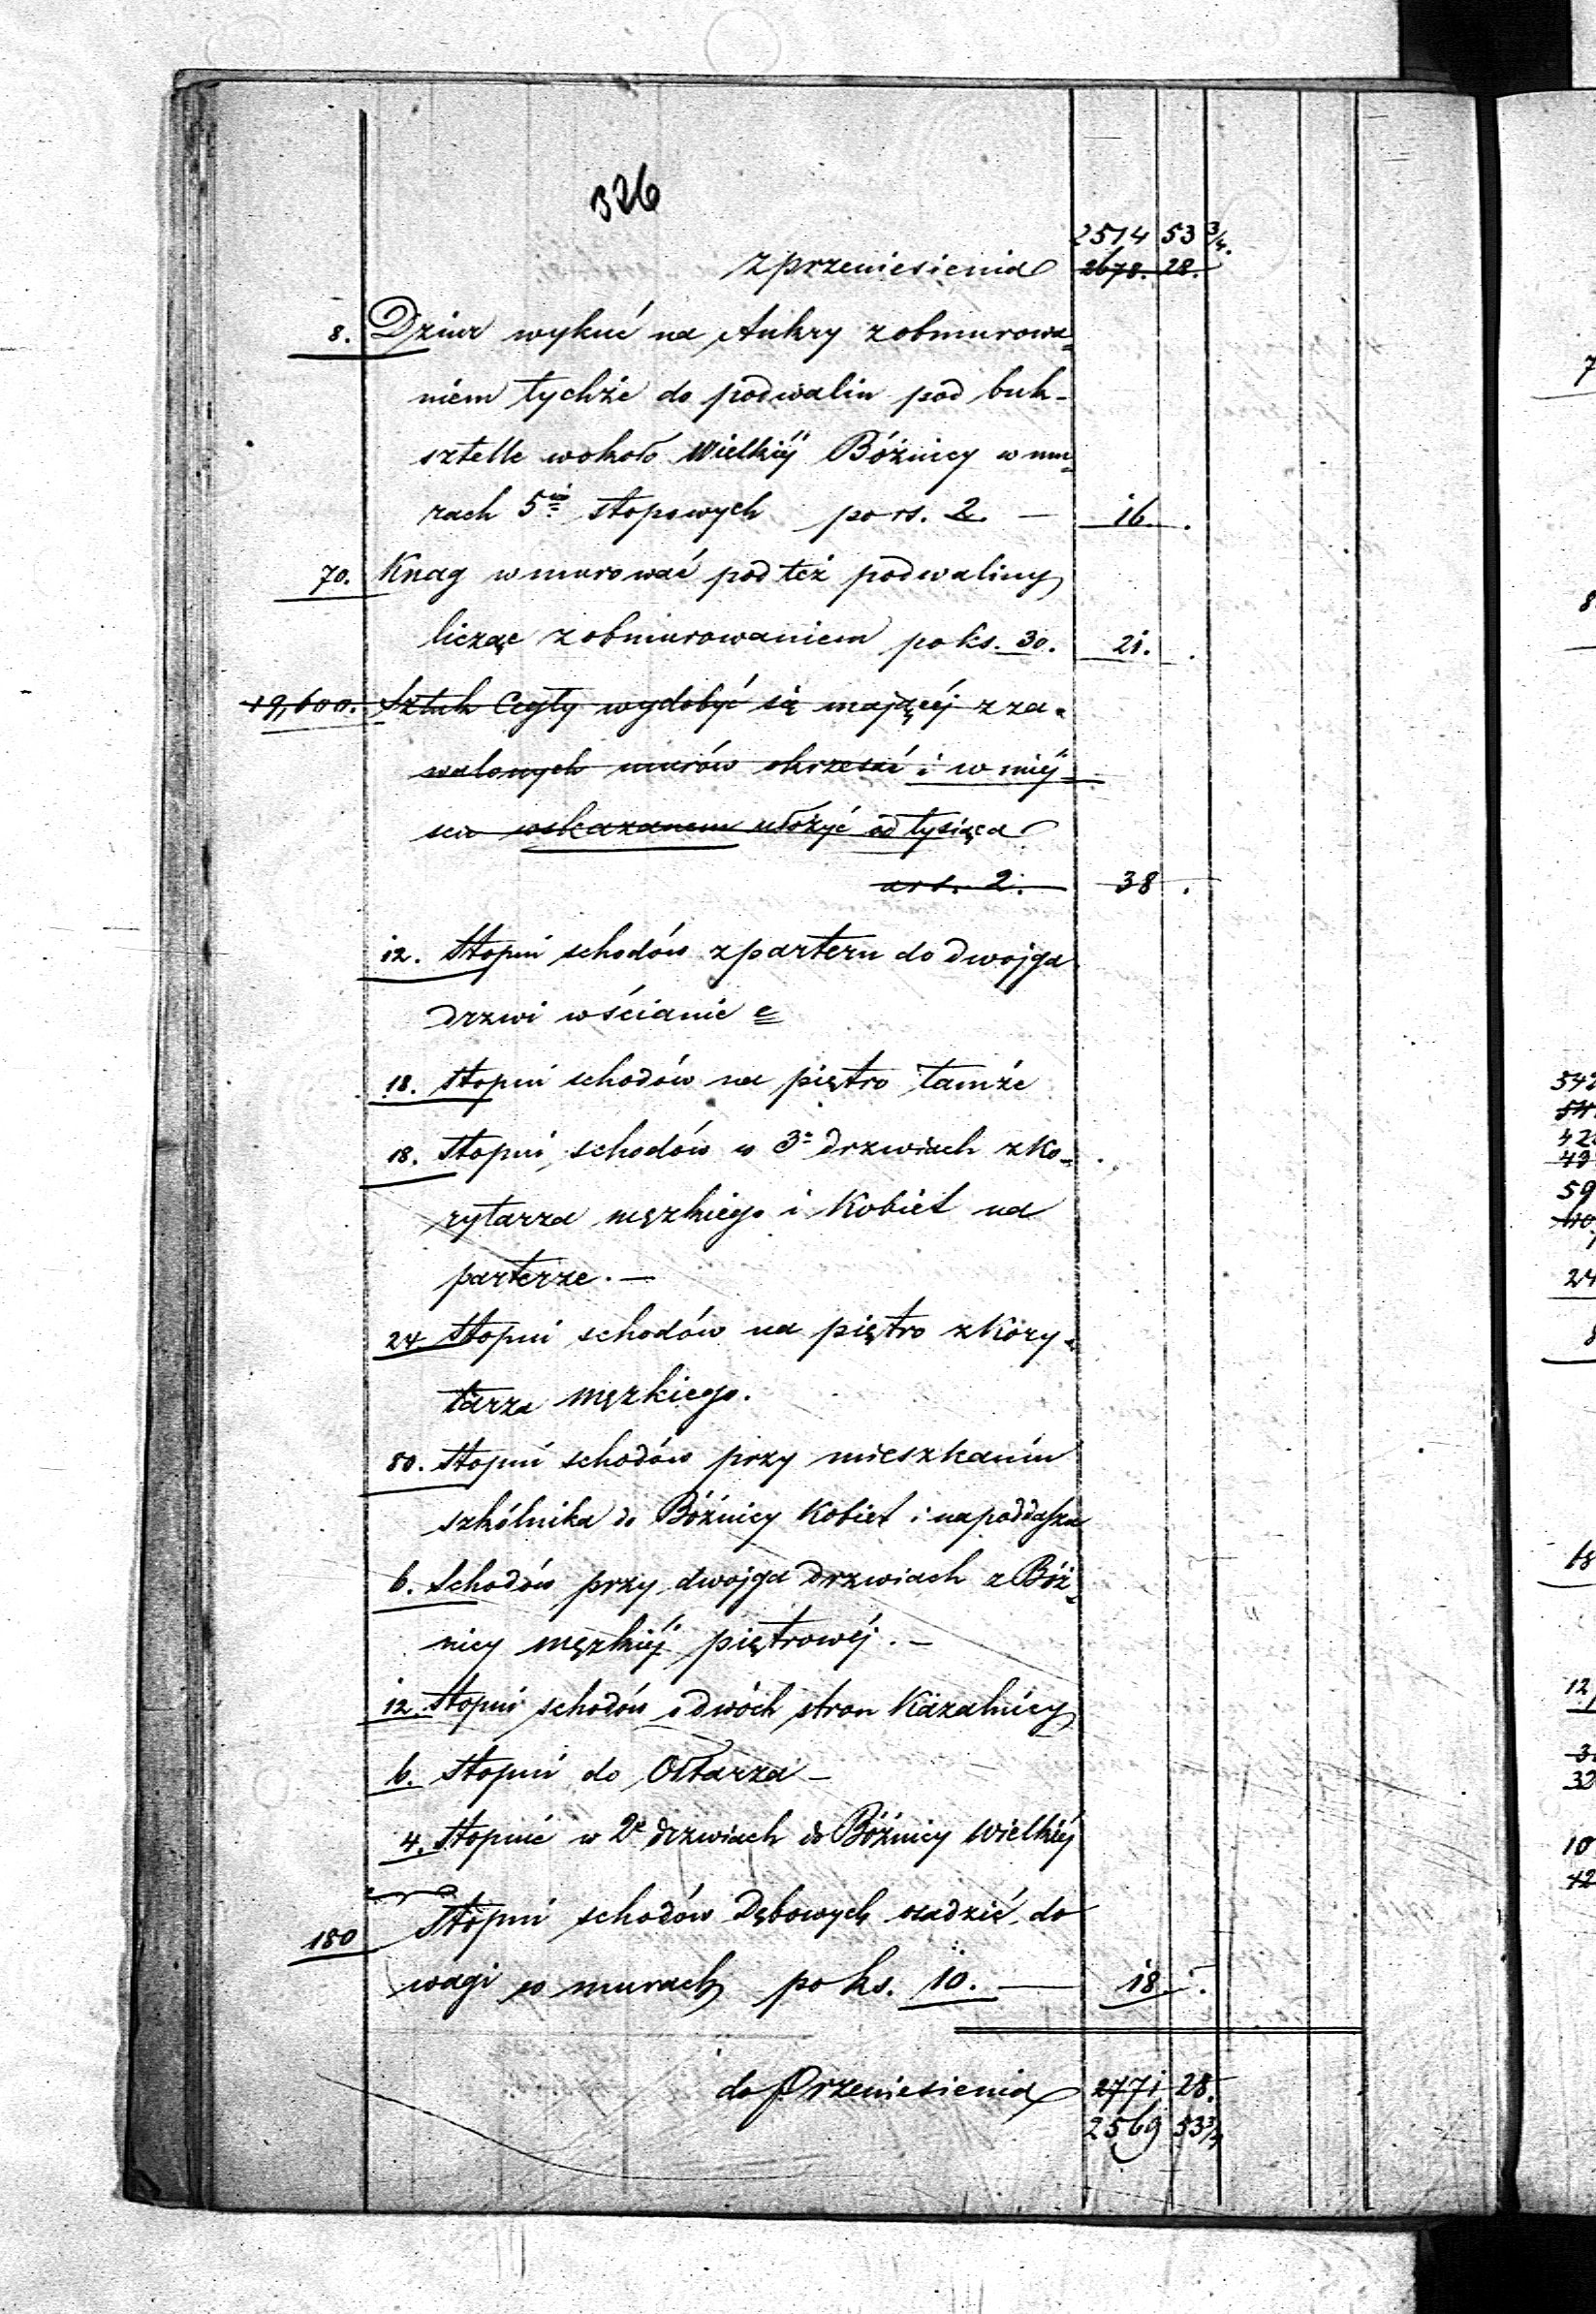 326
2514 53 3/4.
z przeniesienia 2678. 28.
8. Dziur wykuć na Ankry z obmurowa=
niem tychże do podwalin pod buk-
sztelle wokoło Wielkiéj Bóżnicy w mu=
rach 5ciò stopowych po rs. 2. — 16 .
70. Knag wmurować pod też podwaliny
licząc z obmurowaniem po ks. 30. 21. .
19,600. Sztuk Cegły wydobyć się mającéj z za=
walonych murów okrzesać i w miéj=
scu wskazanem ułożyć od tysiąca
a rs. 2. 38 .
12. Stopni schodów z parteru do dwojga
drzwi w ścianie e
18. stopni schodów na piętro tamże
18. Stopni schodów w 3ch drzwiach z ko=
rytarza męzkiego i Kobiet na
parterze. —
24 Stopni schodów na piętro z Kory=
tarza męzkiego.
80. Stopni schodów przy mieszkaniu
szkólnika do Bóźnicy Kobiet i na poddasza
6. Schodów przy dwojga drzwiach z Bóż=
nicy męzkiéj piętrowéj. —
12. Stopni schodów z dwóch stron Kazalnicy
6. Stopni do Ołtarza —
4. Stopnie w 2ch drzwiach do Bóżnicy Wielkiéj
180 Stopni schodów Dębowych osadzić do
wagi w murach po ks. 10. — 18 .
do Przeniesienia 2771 28.
2569 53 3/4